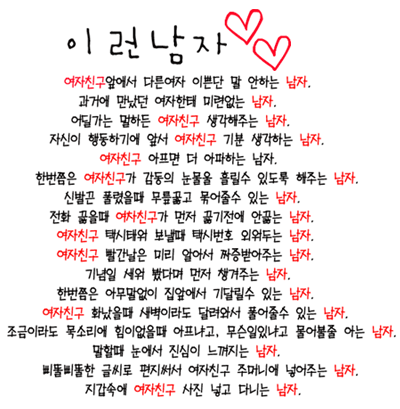 이런남자
여자친구앞에서 다른여자 이쁘단 말 안하는 남자.
과거에 만났던 여자한테 미련없는 남자.
어딜가는 말하든 여자친구 생각해주는 남자.
자신이 행동하기에 앞서 여자친구 기분 생각하는 남자.
여자친구 아프면 더 아파하는 남자.
한번쯤은 여자친구가 감동의 눈물을 흘릴수 있도록 해주는 남자.
신발끈 풀렸을때 무릎꿇고 묶어줄수 있는 남자.
전화 끊을때 여자친구가 먼저 끊기전에 안끊는 남자.
여자친구 택시태워 보낼때 택시번호 외워두는 남자.
여자친구 빨간날은 미리 알아서 짜증받아주는 남자.
기념일 세워 봤다며 먼저 챙겨주는 남자.
한번쯤은 아무말없이 집앞에서 기달릴수 있는 남자.
여자친구 화났을때 새벽이라도 달려와서 풀어줄수 있는 남자.
조금이라도 목소리에 힘이없을때 아프냐고, 무슨일있냐고 물어볼줄 아는 남자.
말할때 눈에서 진심이 느껴지는 남자.
삐뚤삐뚤한 글씨로 편지써서 여자친구 주머니에 넣어주는 남자.
지갑속에 여자친구 사진 넣고 다니는 남자.